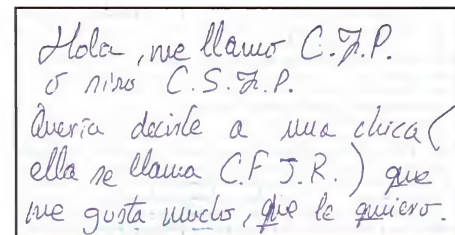 Hola, me llamo C.J.P.
o niño C.S.J.P.
Quería decirle a una chica (
ella se llama C.F J.R.) que
me gusta mucho, que le quiero.